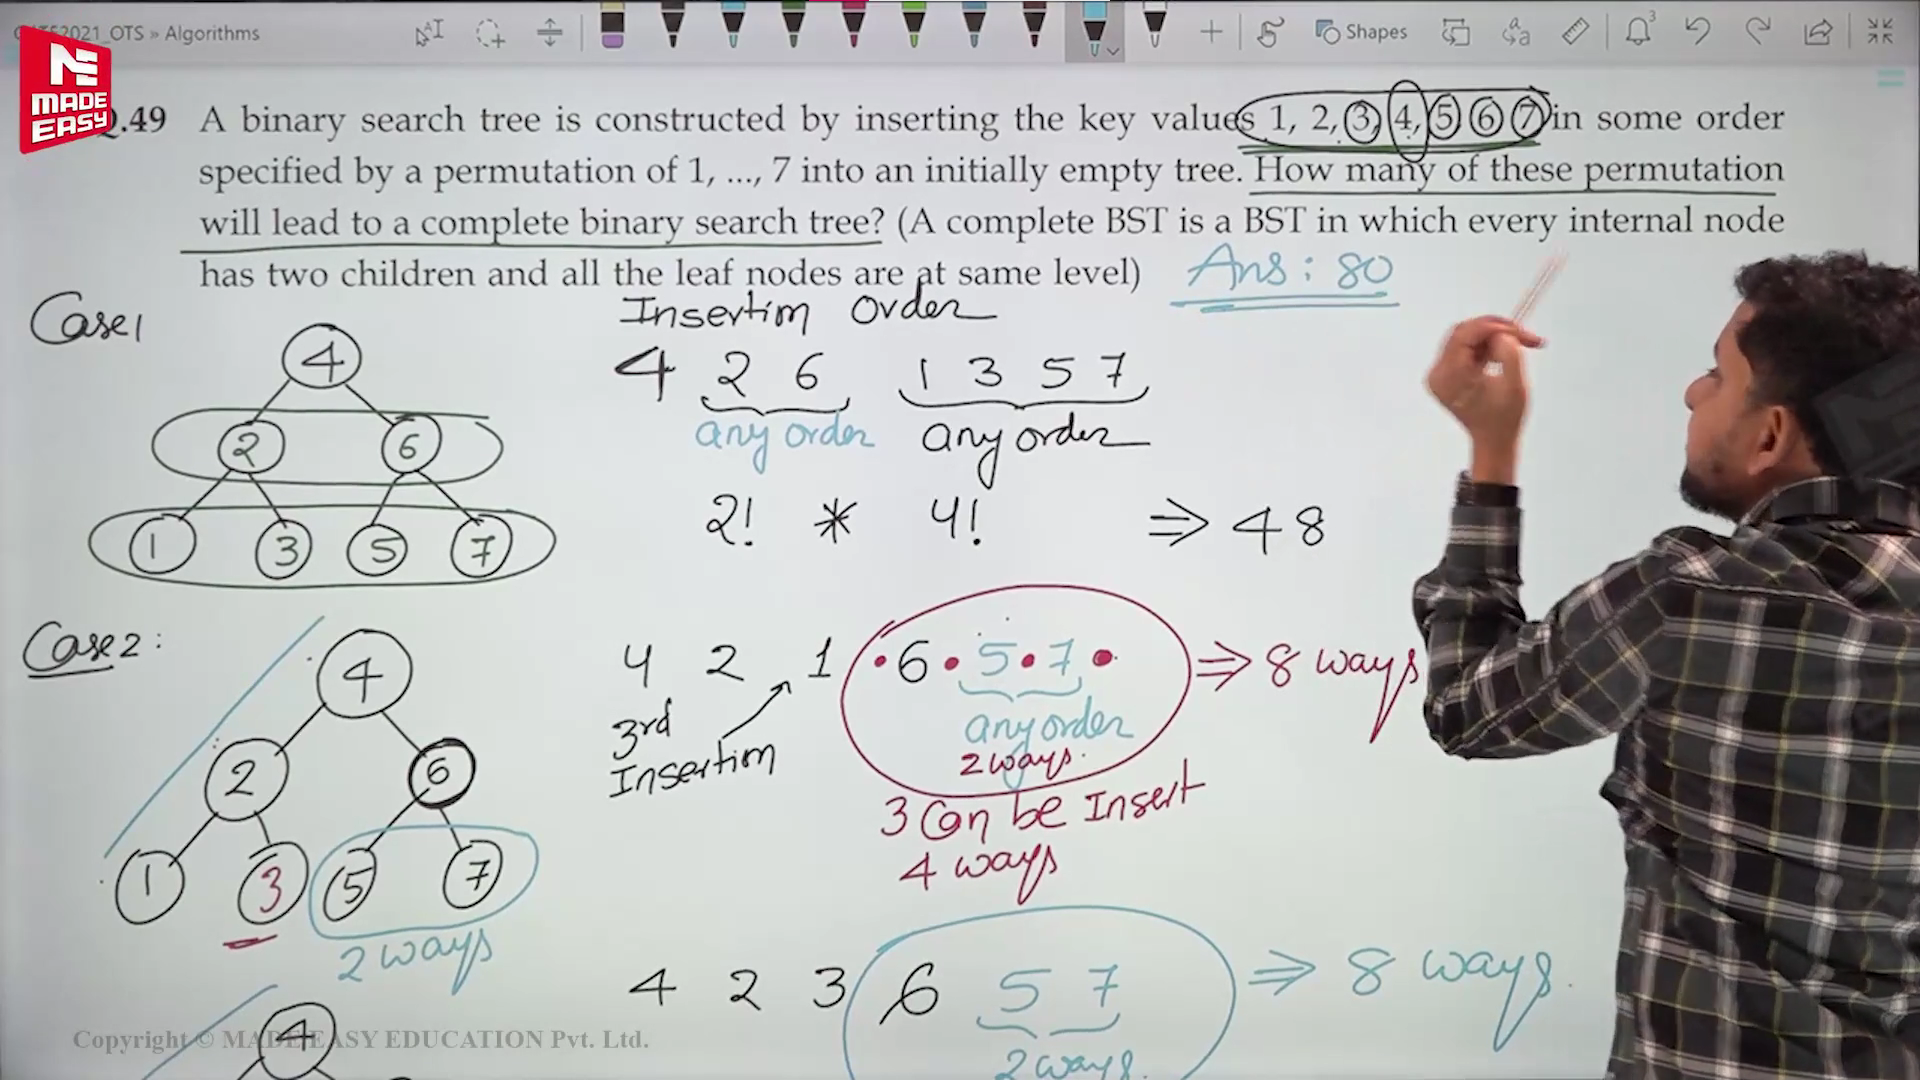 2021_OTS » Algorithms
Shapes
3
MADE
EASY
.49 A binary search tree is constructed by inserting the key values 1, 2, 3, 4, 5, 6, 7 in some order
specified by a permutation of 1, ..., 7 into an initially empty tree. How many of these permutation
will lead to a complete binary search tree? (A complete BST is a BST in which every internal node
has two children and all the leaf nodes are at same level) Ans : 80
Case1
Insertim Order
4 2 6 1 3 5 7
any order any order
2! * 4! ⇒ 48
4
2 6
1 3 5 7
Case2 :
4 2 1 • 6 • 5 • 7 • ⇒ 8 ways
any order
2 ways.
3rd
Insertim
3 Can be Insert
4 ways
4
2 6
1 3 5 7
2 ways
4 2 3 6 5 7 ⇒ 8 ways.
2 ways.
4
Copyright © MADE EASY EDUCATION Pvt. Ltd.